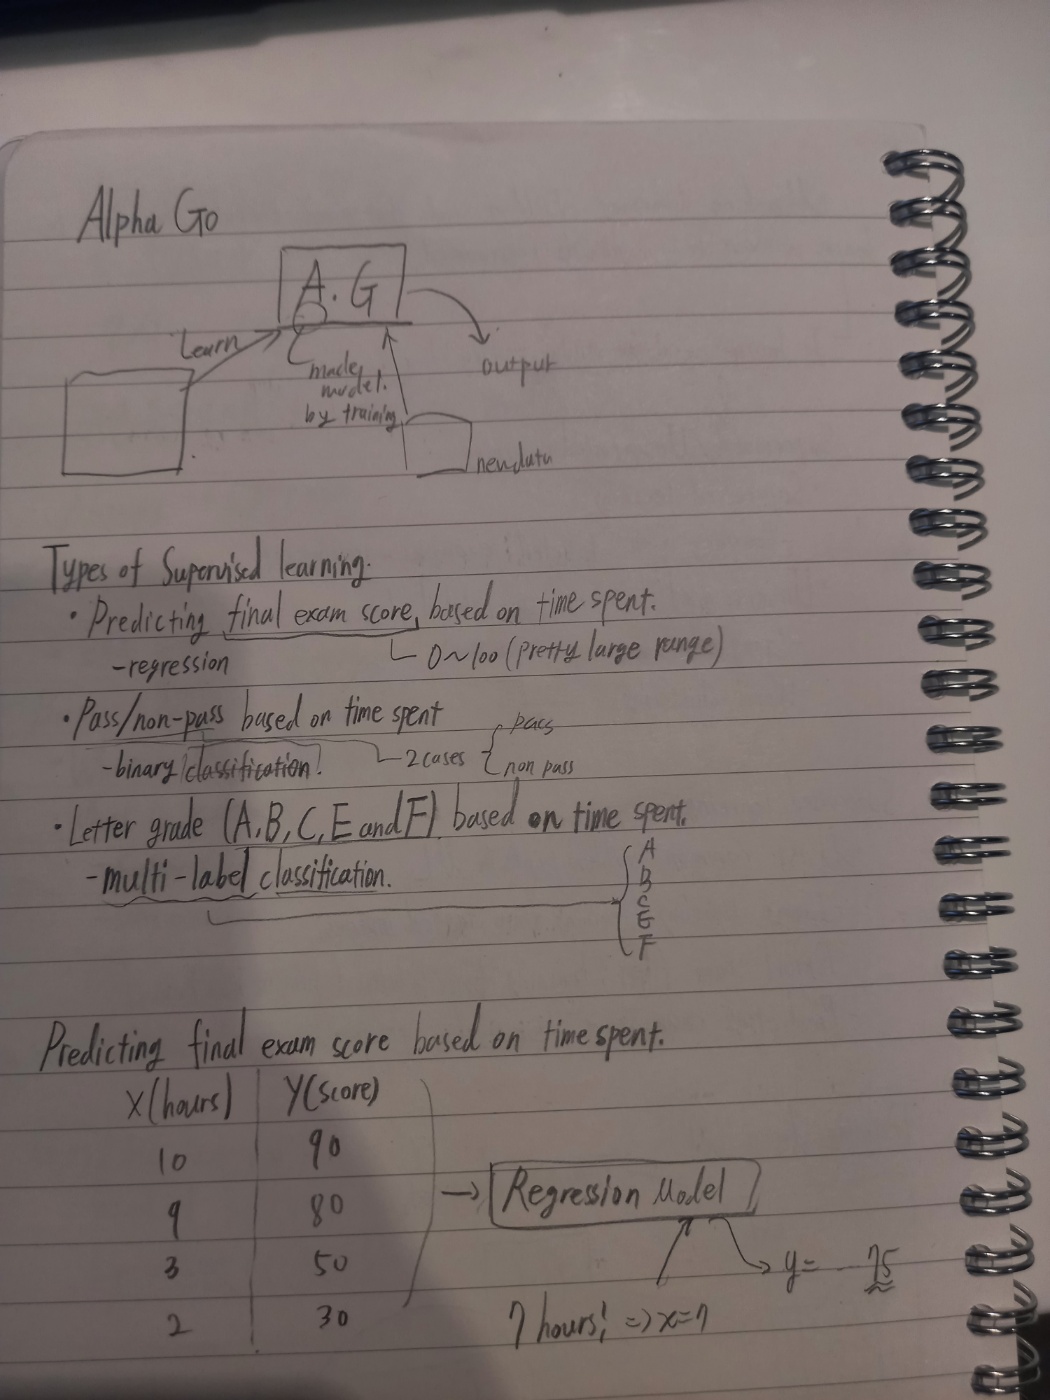 Alpha Go
A.G
Learn
made
model.
by training
output
new data
Types of Supervised learning.
· Predicting final exam score, based on time spent.
-regression
0~100 (Pretty large range)
· Pass/non-pass based on time spent
-binary classification.
2 cases
pass
non pass
· Letter grade (A, B, C, E and F) based on time spent.
-multi-label classification.
A
B
C
E
F
Predicting final exam score based on time spent.
X(hours) Y(score)
10 90
9 80
3 50
2 30
→ Regression Model
y= 75
7 hours! => x=7